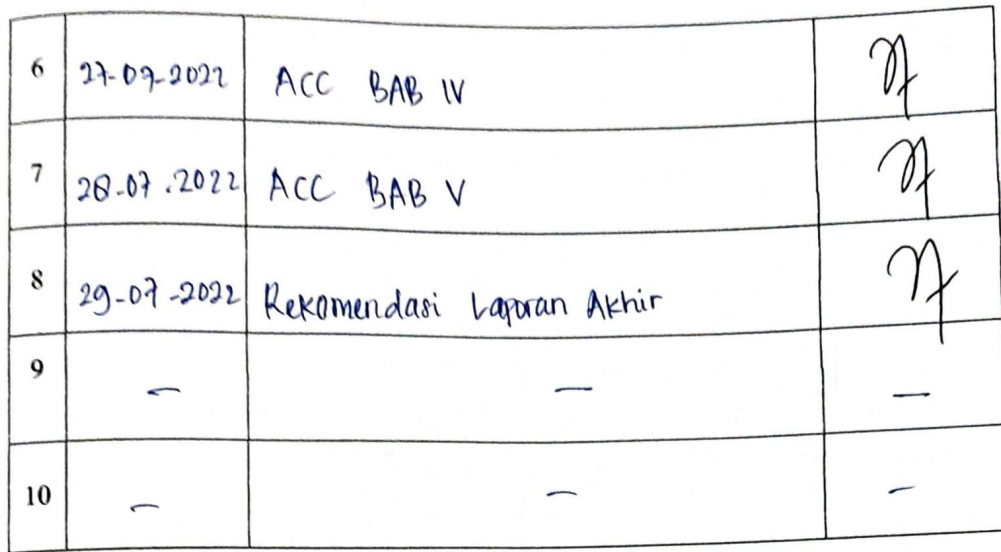 6 27-07-2022 ACC BAB IV
7 28-07.2022 ACC BAB V
8 29-07-2022 Rekomendasi Laporan Akhir
9 - - -
10 - - -